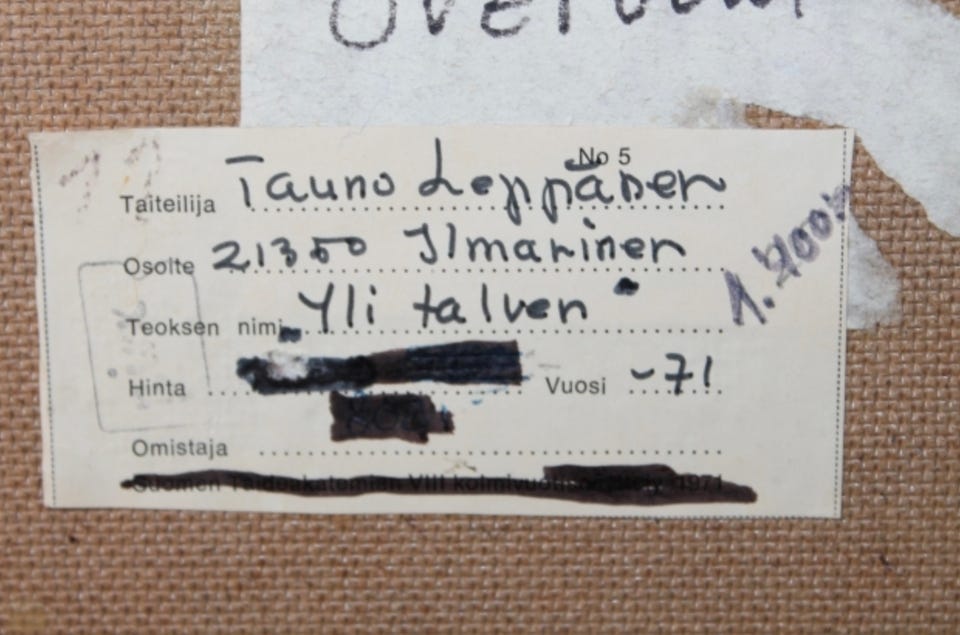 No 5
Taiteilija Tauno Leppänen
Osoite 21350 Ilmarinen
Teoksen nimi Yli talven
Hinta Vuosi -71
Omistaja
Suomen Taideakatemian VIII kolmivuotisnäyttely 1971